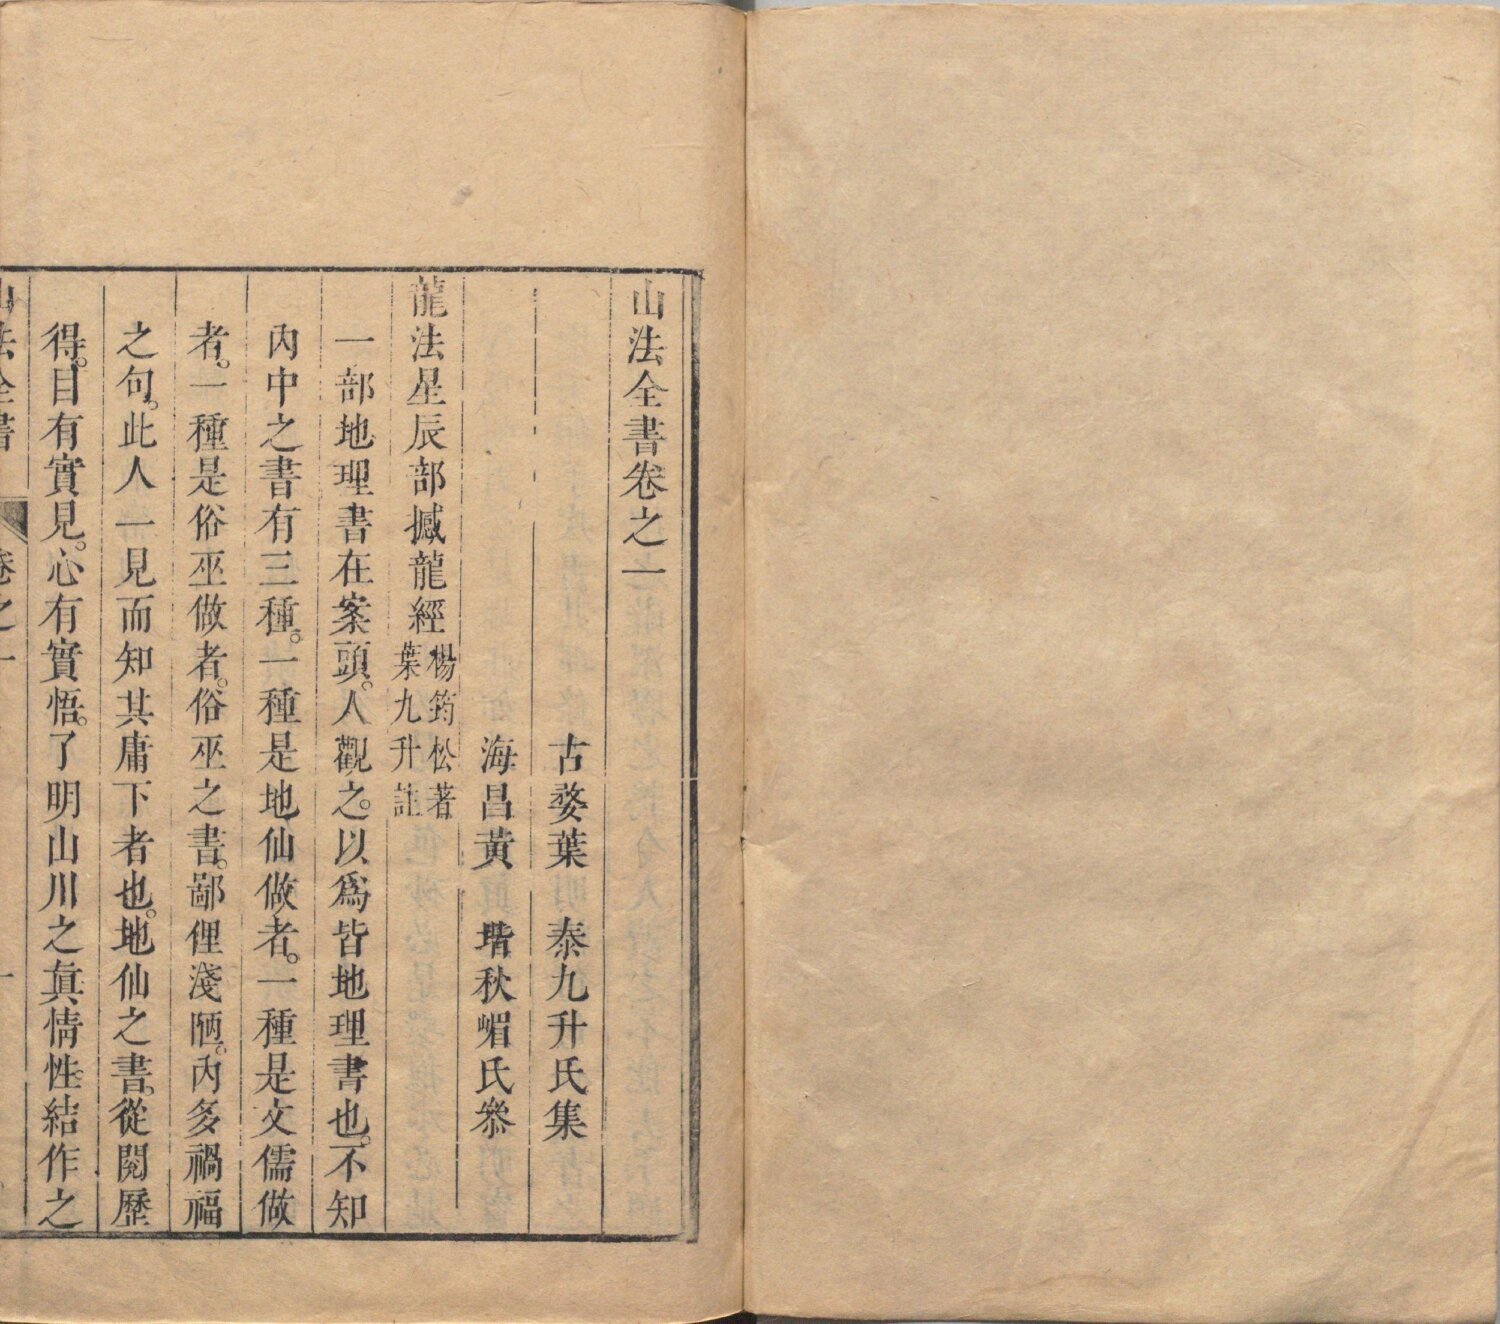 山法全書卷之一
古婺葉　泰九升氏集
海昌黃　堦秋嵋氏叅
龍法星辰部撼龍經 楊筠松著 葉九升註
一部地理書在案頭。人觀之。以爲皆地理書也。不知
內中之書有三種。一種是地仙做者。一種是文儒做
者。一種是俗巫做者。俗巫之書。鄙俚淺陋。內多禍福
之句。此人一見而知其庸下者也。地仙之書。從閱歷
得。目有實見。心有實悟。了明山川之眞情性結作之
山法全書 卷之一 一